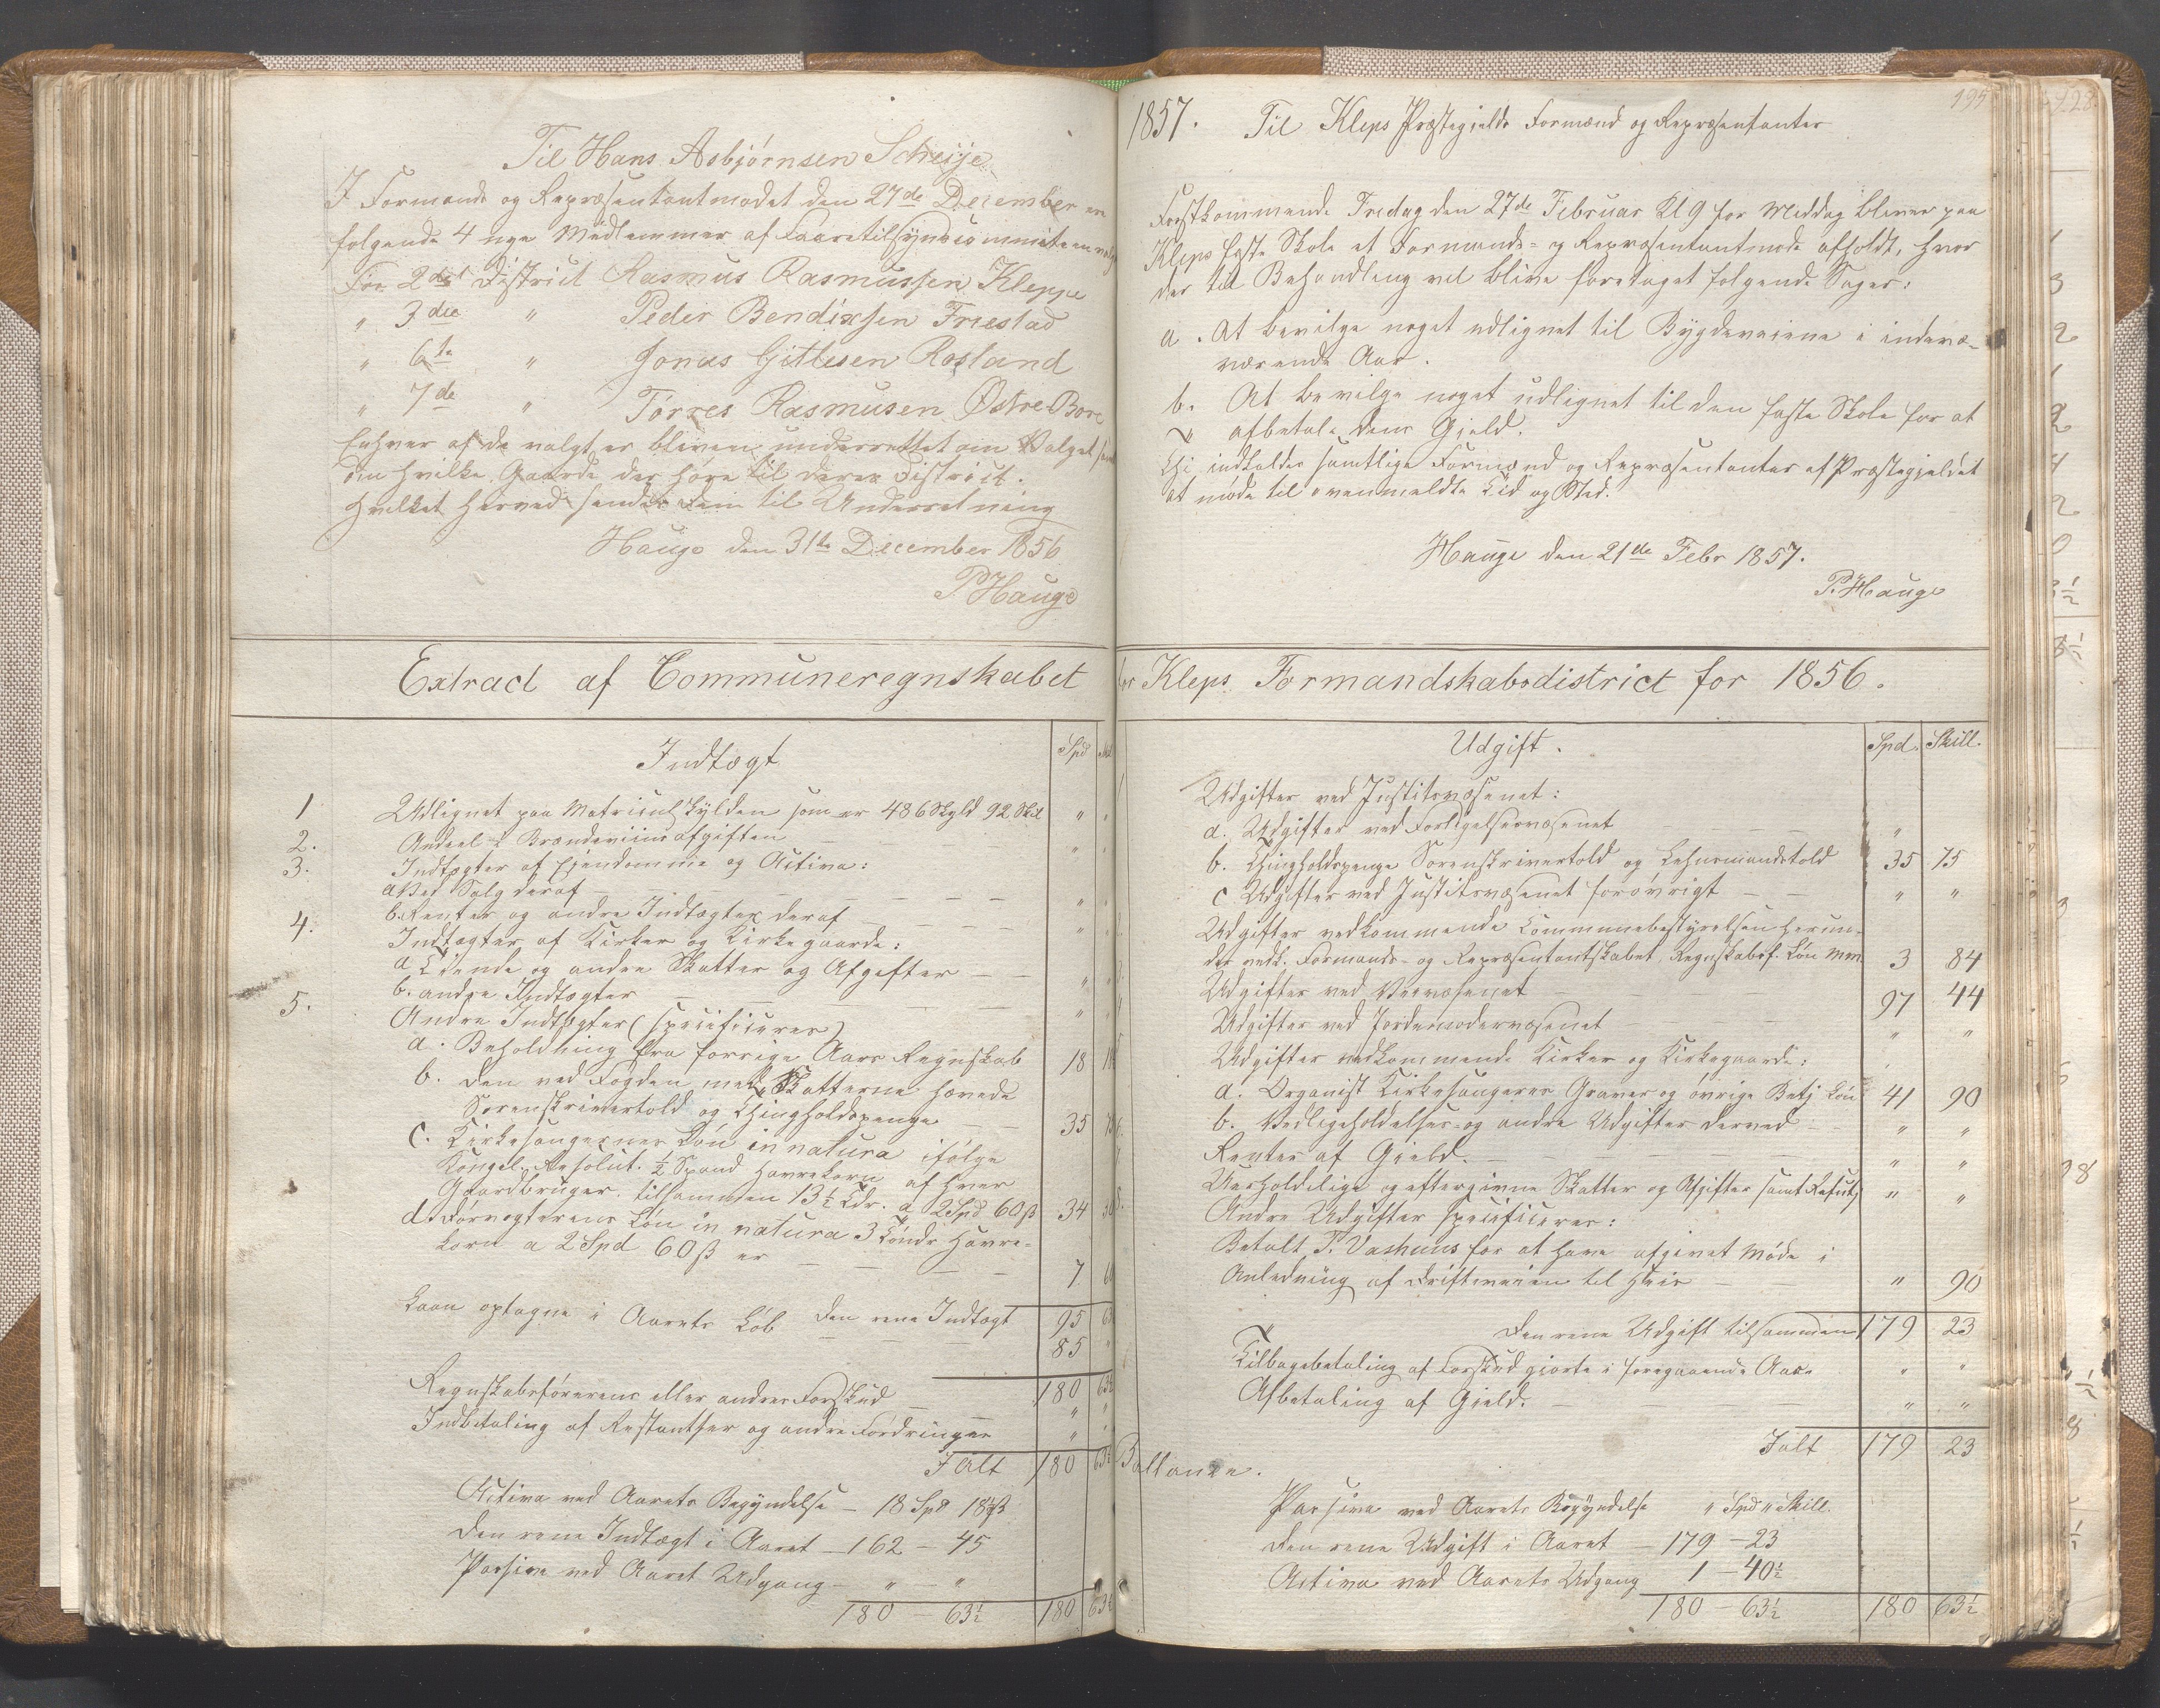 Til Hans Asbjørnsen Scheije
I Formands og Repræsentantmødet den 27de December er
følgende 4 nye Medlemmer af Faaretilsynscommiteen valgt
For 2det District Rasmus Rasmussen Kleppe
" 3die " Peder Bendixsen Friestad
" 6te " Jonas Gitlesen Rosland
" 7de " Torres Rasmusen Østre-Bore
Enhver af de valgte er bleven underrettet om Valget samt
om hvilke Gaarde der høre til deres District.
Hvilket herved sendes dem til Underretning
Hauge den 31te December 1856
P Hauge
Extract af Communeregnskabet
Indtægt
Spd
1 Udlignet paa Matriculskylden som er 486 Skyld 92 Skil " "
2. Andeel i Brændeviinsafgiften " "
3. Indtægter af Ejendomme og Activa:
a Ved Salg deraf " "
b. Renter og andre Indtægter deraf " "
4. Indtægter af Kirker og Kirkegaarde:
a Tiende og andre Skatter og Afgifter " "
b. andre Indtægter " "
5. Andre Indtægter (specificeres)
a. Beholdning fra forrige Aars Regnskab 18
b. Den ved Fogden med Skatterne hævede
Sorenskrivertold og Thingholdspenge 35
c. Kirkesangernes Løn in natura ifølge
Kongel. Resolut. ½ Spand Havrekorn af hver
Gaardbruger tilsammen 13½ Tdr. a 2 Spd 60 ß 34
d. Førvogterens Løn in natura 3 Tønde Havre-
korn a 2 Spd 60 ß er 7
Den rene Indtægt 95
Laan optagne i Aarets Løb 85
180 63½
Regnskabsførerens eller andres Forskud " "
Indbetaling af Restantser og andre Fordringer " "
Ialt 180 63½
Activa ved Aarets Begyndelse - 18 Spd 18½ ß
Den rene Indtægt i Aaret - 162 - 45
Passiva ved Aaret Udgang - " "
180 - 63½ 180 63½
195
1857. Til Kleps Præstegjelds Formænd og Repræsentanter
Førstkommende Fredag den 27de Februar Kl 9 for Middag bliver paa
Kleps faste Skole et Formands- og Repræsentantmøde afholdt, hvor
der til Behandling vil blive foretaget følgende Sager:
a. At bevilge noget udlignet til Bygdeveiene i indevæ-
rende Aar.
b. At bevilge noget udlignet til den faste Skole for at
afbetale dens Gjeld.
Thi indkaldes samtlige Formænd og Repræsentanter af Præstegjeldet
at møde til ovenmeldte Tid og Sted.
Hauge den 21de Febr 1857.
P. Hauge
for Kleps Formandskabsdistrict for 1856.
Udgift.
Spd. Skill.
Udgifter ved Justitsvæsenet:
a. Udgifter ved Forligelsesvæsenet "
b. Thingholdspenge Sorenskrivertold og Lehnsmandstold 35 75
c Udgifter ved Justitsvæsenet forøvrigt " "
Udgifter vedkommende Communebestyrelsen herun-
der vedk. Formands- og Repræsentantskabet, Regnskabsf. Løn mm. 3 84
Udgifter ved Veivæsenet 97 44
Udgifter ved Jordemodervæsenet " "
Udgifter vedkommende Kirker og Kirkegaarde:
a. Organist Kirkesangeres Graver og øvrige Betj Løn 41 90
b. Vedligeholdelses- og andre Udgifter derved " "
Renter af Gjeld. " "
Uerholdelige og eftergivne Skatter og Afgifter samt " "
Andre Udgifter specificeres:
Betalt T. Vashuus for at have afgivet Møde i
Anledning af Driftsveien til Heie " 90
Den rene Udgift tilsammen 179 23
Tilbagebetaling af Forskud gjorte i foregaaende Aar " "
Afbetaling af Gjeld. " "
Ialt 179 23
Ballance.
Passiva ved Aarets Begyndelse " Spd " Skill.
Den rene Udgift i Aaret - 179 - 23
Activa ved Aarets Udgang 1 - 40½
180 - 63½ 180 63½